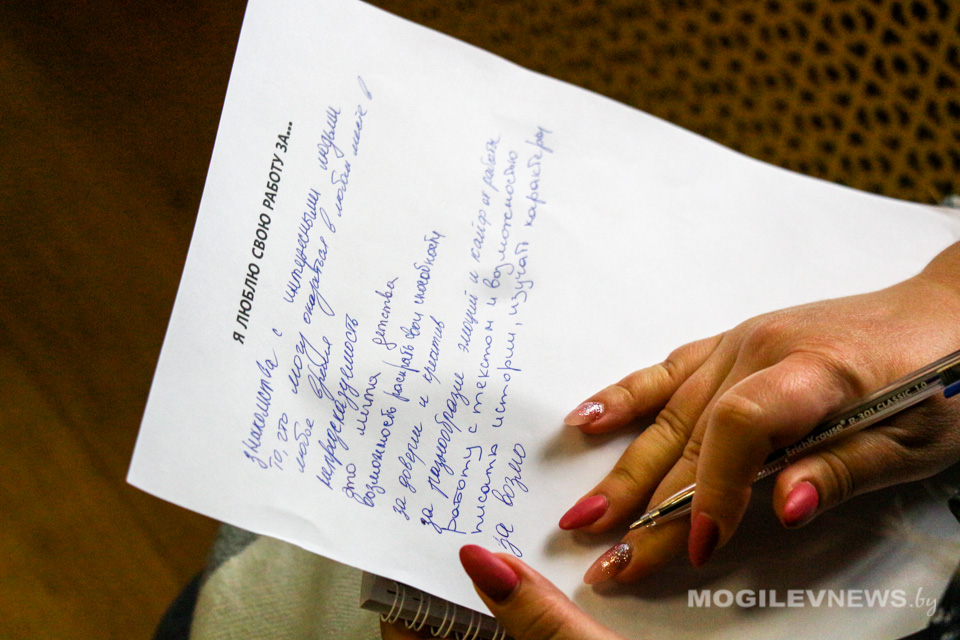 Я ЛЮБЛЮ СВОЮ РАБОТУ ЗА...
знакомства с интересными людьми
то, что могу оказаться в любом месте в
любое время
непредсказуемость
это мечта детства
возможность раскрыть свои способности
за доверие и
за разнообразие эмоций и кайф от работы
работу с текстом и возможностью
писать истории, изучать характеры
за возмо
ErichKrause® R-301 CLASSIC 1.0
MOGILEVNEWS.by